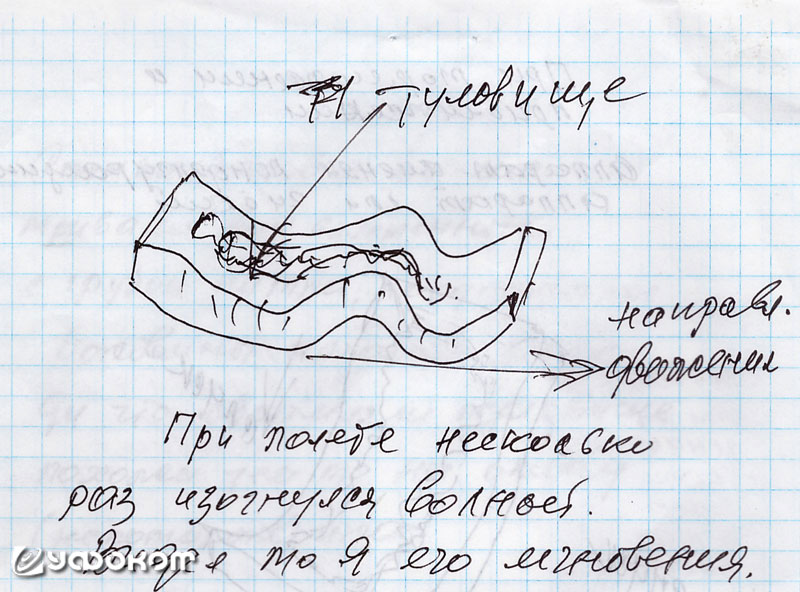 туловище
направл.
движения
При полете несколько
раз изогнулся волной.
то я его мгновения.
УФОКОМ